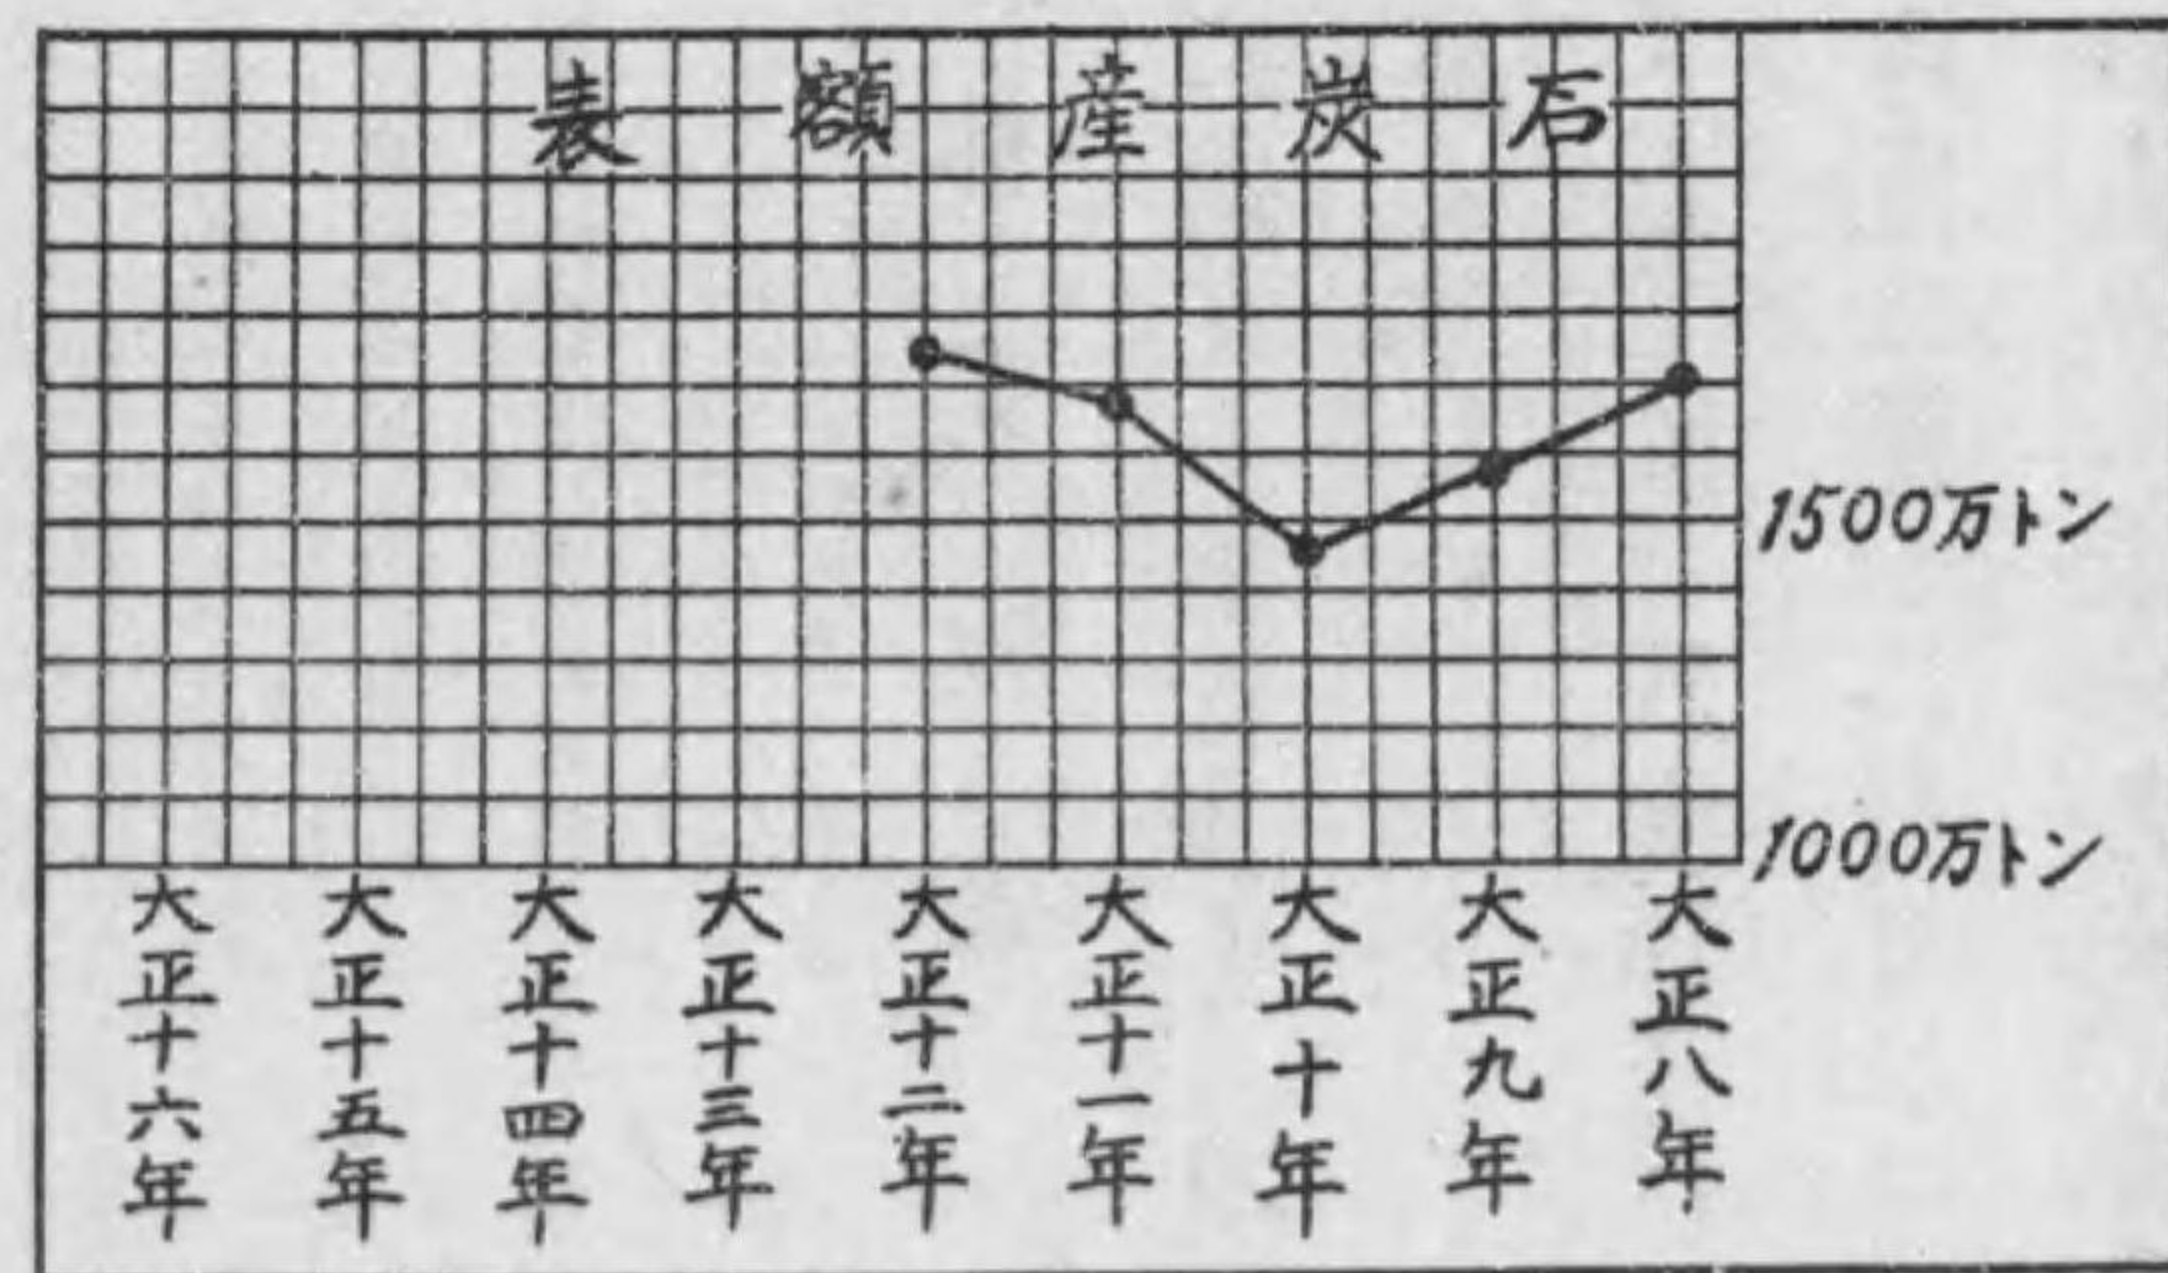 石炭産額表
1500万トン
1000万トン
大正八年
大正九年
大正十年
大正十一年
大正十二年
大正十三年
大正十四年
大正十五年
大正十六年